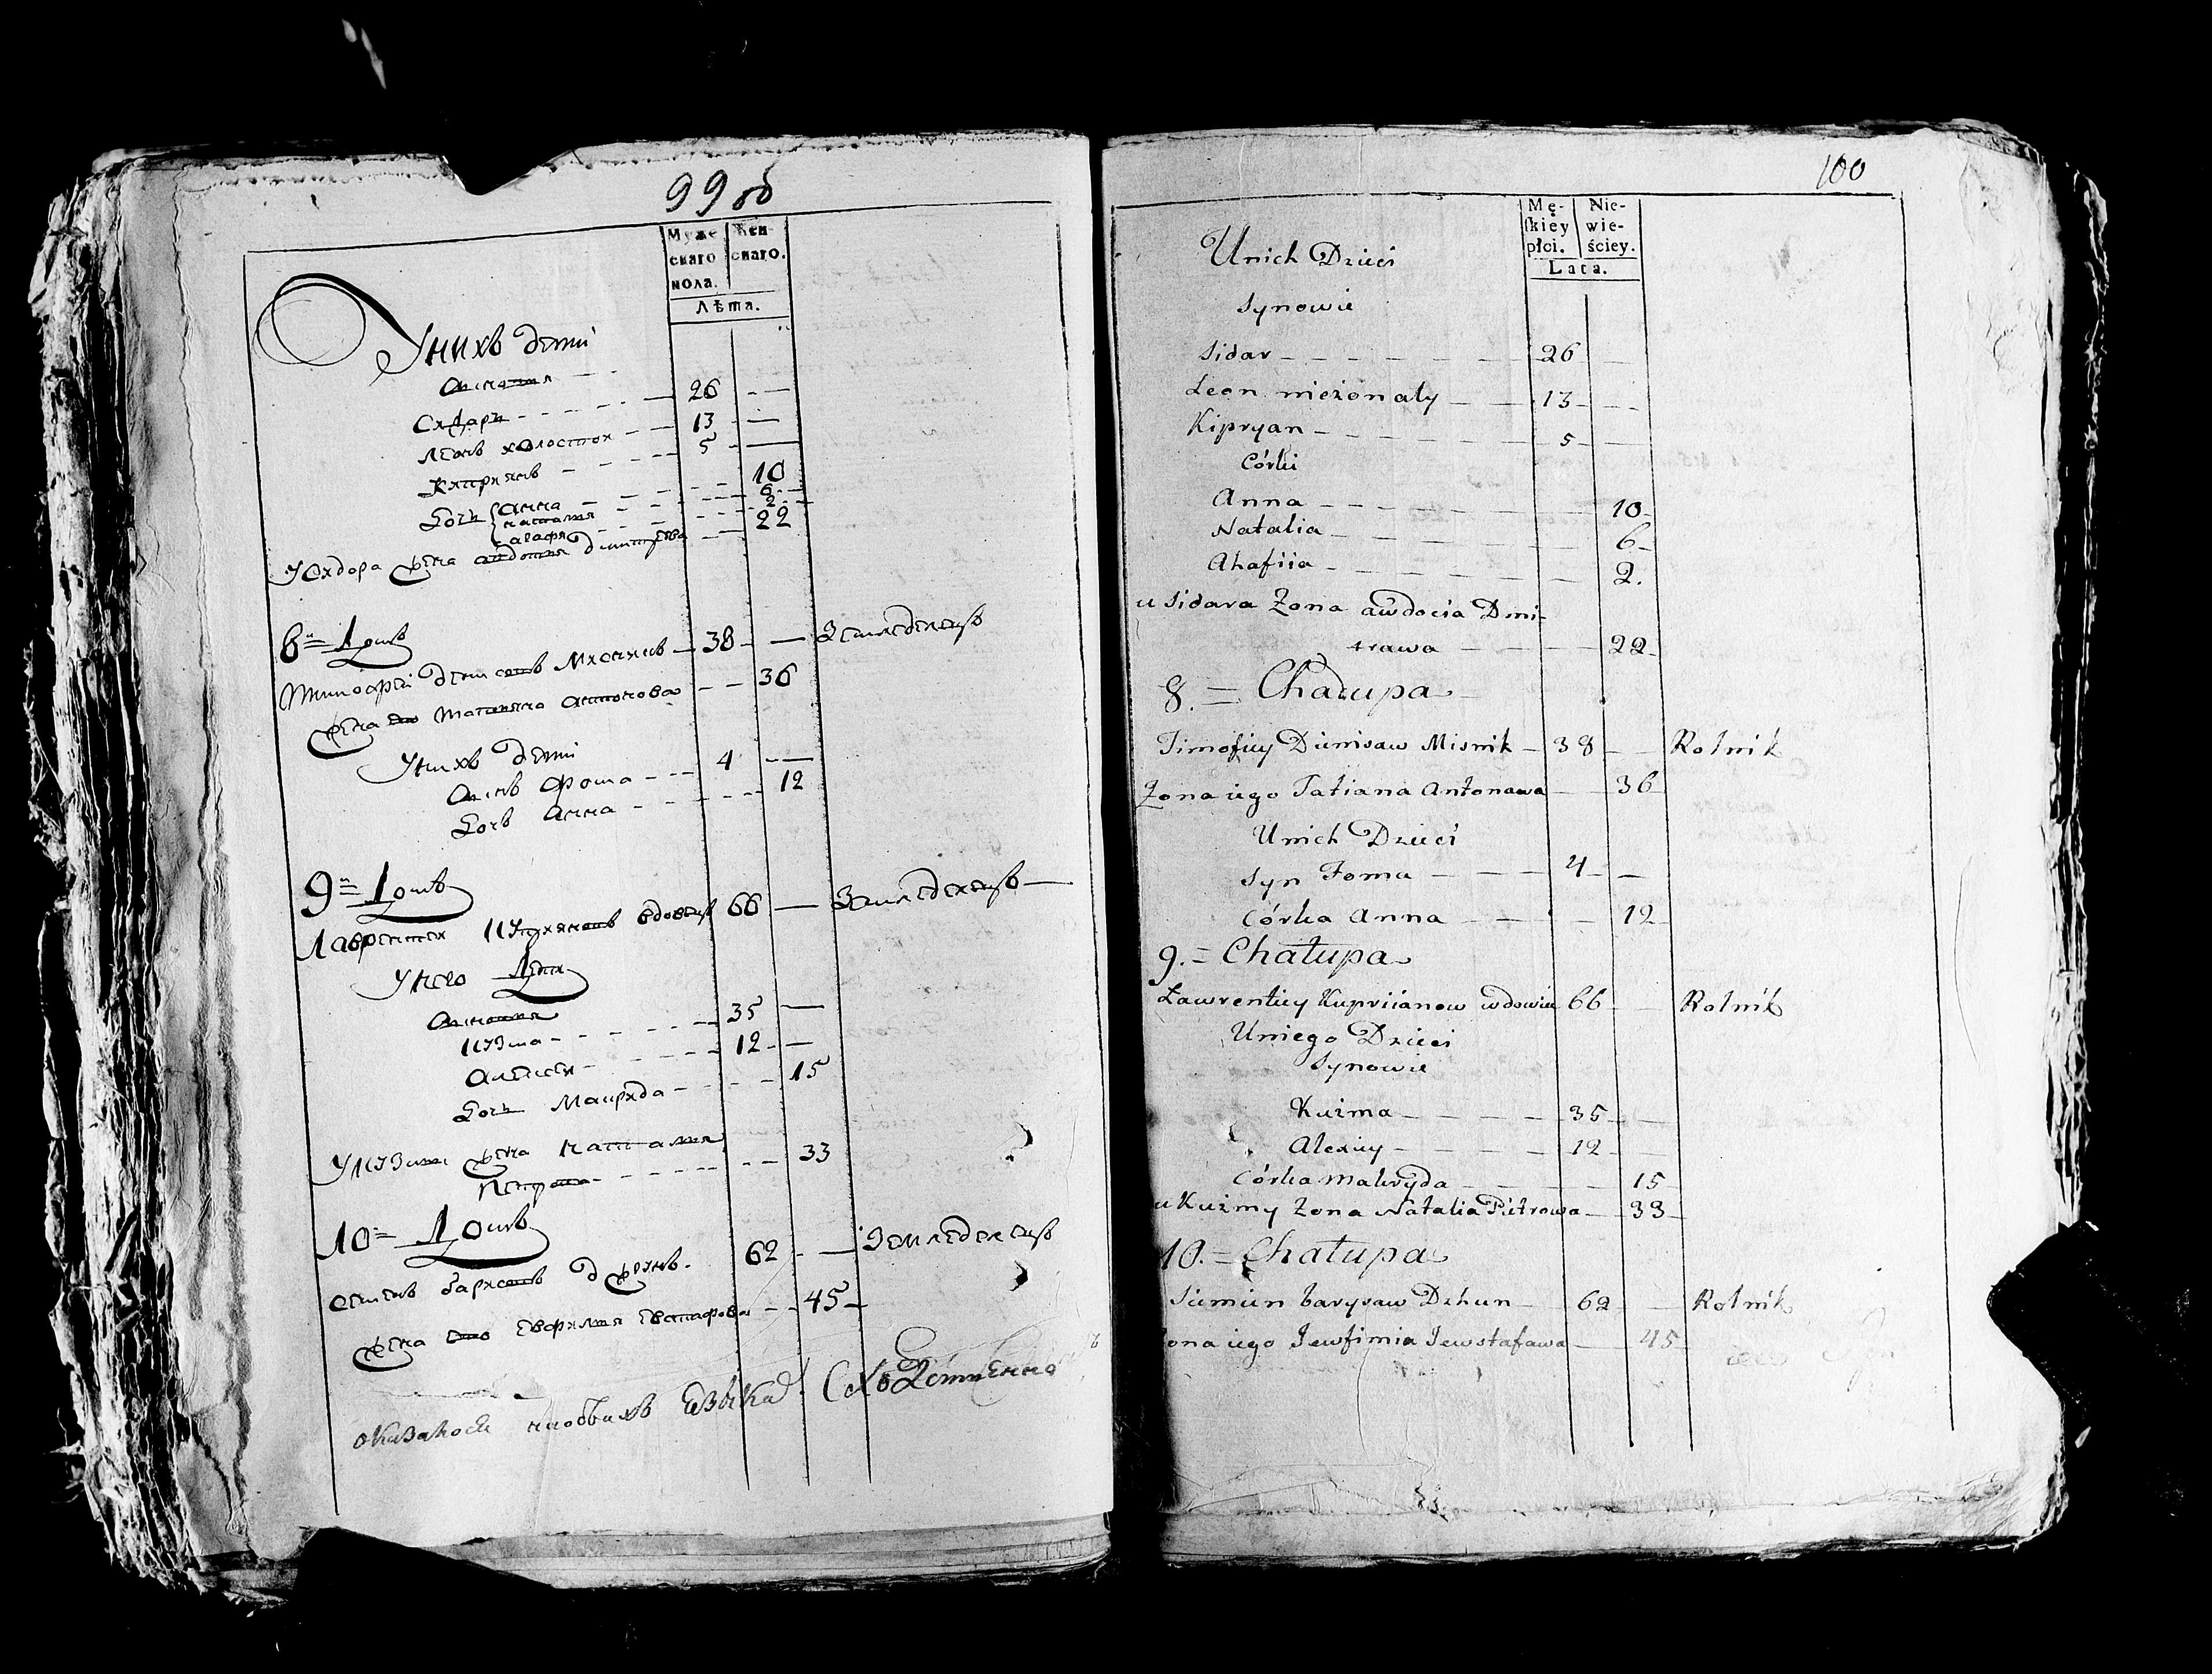 99 об
Муже
скаго
пола.
Жен-
скаго.
Лѣта.
У нихъ дети
Сидаръ 26
Леонъ холостой 13
Киприянъ 5
Дочи Анна 10
Наталя 6
Агафия 2
У Сидора жена Авдотия Дмитрева 22
8й Домъ
Тимофей Денисовъ Мисникъ 38 Земледелецъ
Жена его Татияна Антонова 36
У нихъ дети
Синъ Фома 4
Дочь Анна 12
9й Домъ
Лаврентей Куприяновъ вдовецъ 66 Земледелецъ
У него дети
Синовья
Кузма 35
Алексей 12
Дочь Макрида 15
У Кузми жена Наталия
Петрова 33
10й Домъ
Семенъ Барисовъ 62 Земледелецъ
Жена его Евфимия Евстафова 45
оказалося
100
Mę-
skiey
płci.
Nie-
wie-
ściey.
Lata.
U nich Dzieci
Synowie
Sidar 26
Leon nieżonaty 13
Kipryan 5
Córki
Anna 10
Natalia 6
Ahafiia 2.
u Sidara Żona Awdocia Dmi-
trawa 22
8. = Chałupa
Timofiey Dienisaw Misnik 38 Rolnik
Żona iego Tatiana Antonawa 36
U nich Dzieci
Syn Foma 4
Córka Anna 12
9. = Chałupa
Ławrentiey Kupriianow wdowiec 66 Rolnik
U niego Dzieci
Synowie
Kuźma 35
Alexiey 12
Córka Makryda 15
u Kuźmy Żona Natalia Pietrowa 33
10. = Chałupa
Siemien Barysaw Dzhun 62 Rolnik
ona iego Jewfimia Jewstafawa 45